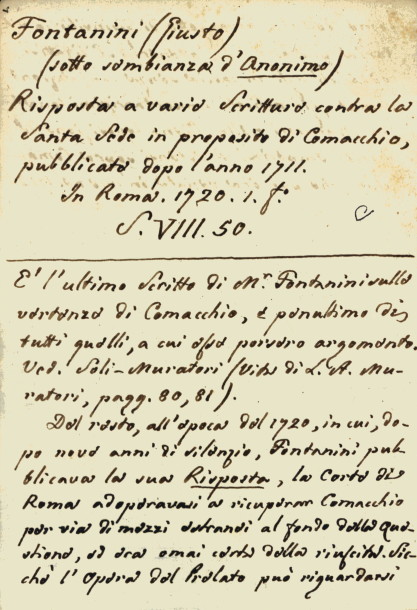 Fontanini (Giusto)
(sotto sembianza d'Anonimo)
Risposta a varie Scritture contra la
Santa Sede in proposito di Comacchio,
pubblicate dopo l'anno 1711.
In Roma. 1720. 1. f.º
S. VIII. 50.
È l'ultimo Scritto di M.r Fontanini sulla
vertenza di Comacchio, e penultimo di
tutti quelli, a cui essa porse argomento.
Ved. Soli-Muratori (Vita di L. A. Mu-
ratori, pagg. 80, 81).
Del resto, all'epoca del 1720, in cui, do-
po nove anni di silenzio, Fontanini pub-
blicava la sua Risposta, la Corte di
Roma adoperavasi a ricuperar Comacchio
per via di mezzi estranei al fondo della Que-
stione, ed era omai certa della riuscita. Sic-
chè l'Opera del Prelato può riguardarsi